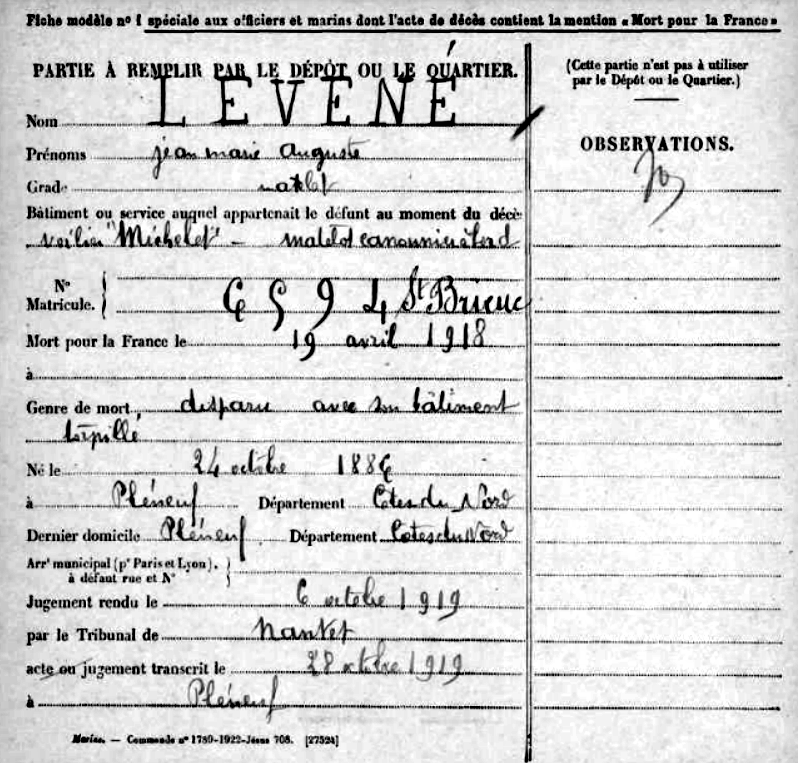 Fiche modèle nº 1 spéciale aux officiers et marins dont l'acte de décès contient la mention « Mort pour la France »
PARTIE À REMPLIR PAR LE DÉPÔT OU LE QUARTIER.
Nom LEVENÉ
Prénoms jean marie Auguste
Grade matelot
Bâtiment ou service auquel appartenait le défunt au moment du décè
voilier "Michelet" - matelot canonnier
Nº Matricule. 6594 St Brieuc
Mort pour la France le 19 avril 1918
à
Genre de mort disparu avec son bâtiment
torpillé
Né le 24 octobre 1886
à Pléneuf Département Cotes du Nord
Dernier domicile Pléneuf Département Cotes du Nord
Arrt municipal (pr Paris et Lyon),
à défaut rue et Nº
Jugement rendu le 6 octobre 1919
par le Tribunal de Nantes
acte ou jugement transcrit le 28 octobre 1919
à Pléneuf
Marine. — Commande nº 1789-1922-Jésus 708. [27524]
(Cette partie n'est pas à utiliser
par le Dépôt ou le Quartier.)
OBSERVATIONS.